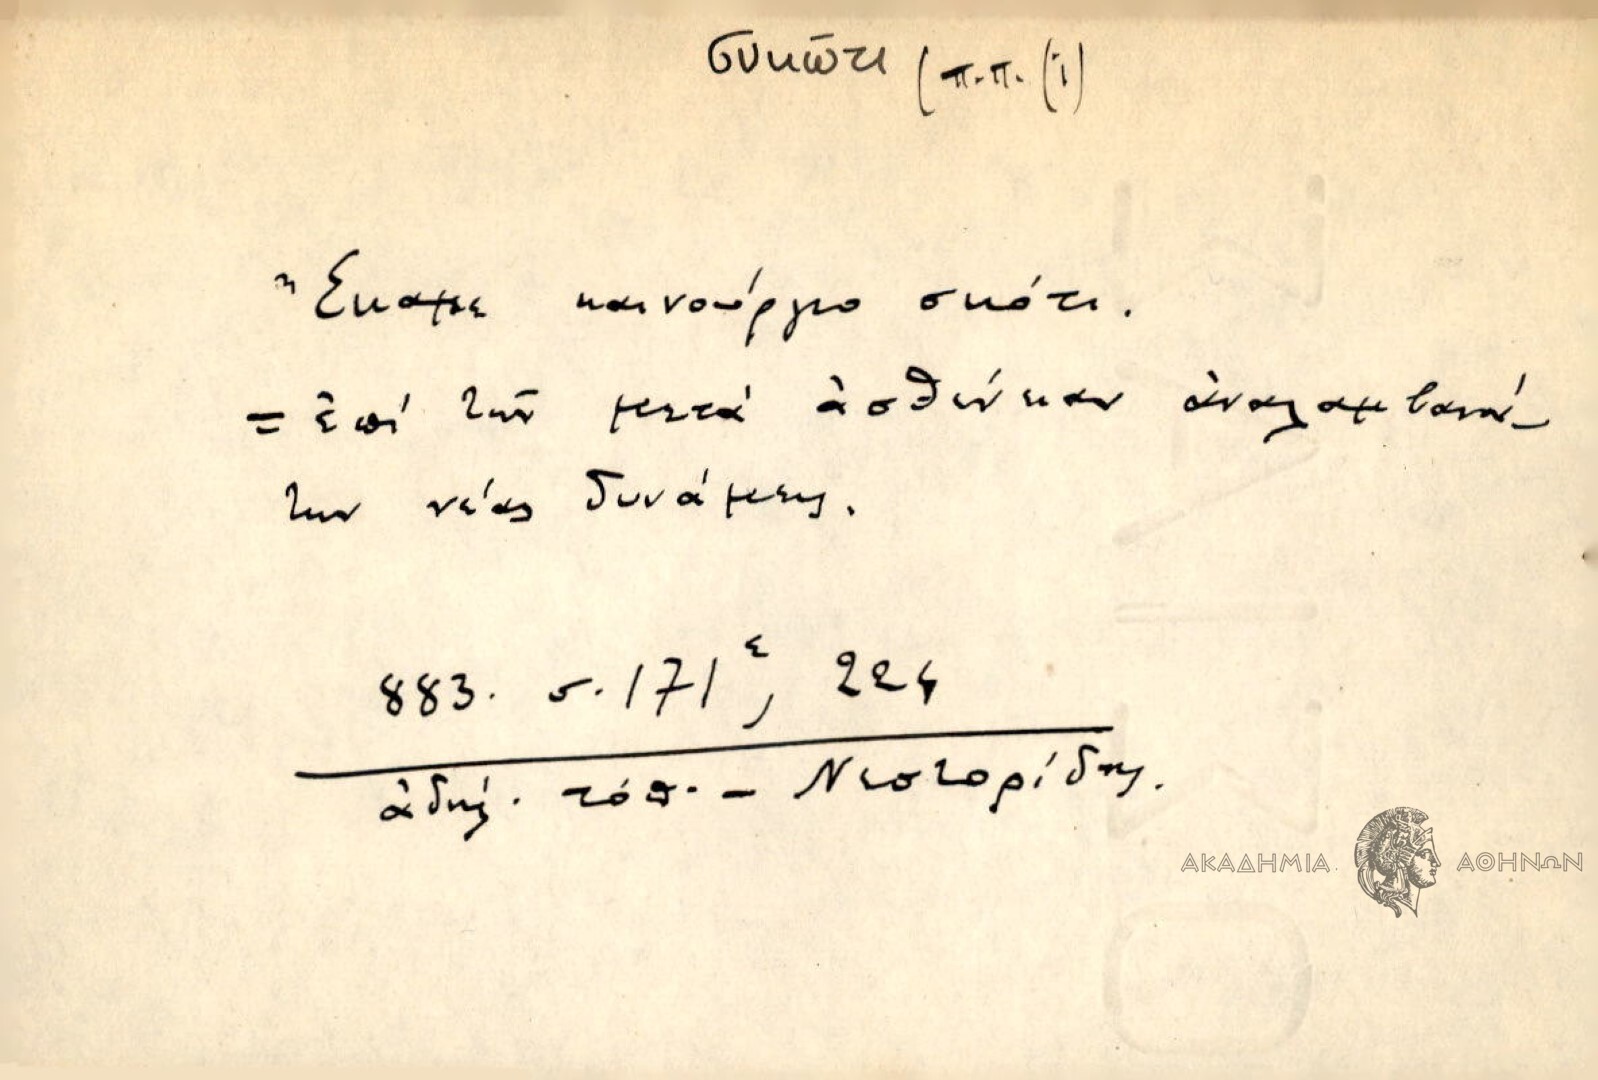 συκώτι (π.π. (i)
Ἔκαμε καινούργιο σκότι.
= ἐπί τῶν μετά ἀσθένειαν ἀναλαμβανό-
των νέας δυνάμεις.
883. σ. 171 ε, 224
ἀδήλ. τόπ. - Νεστορίδης.
ΑΚΑΔΗΜΙΑ ΑΘΗΝΩΝ